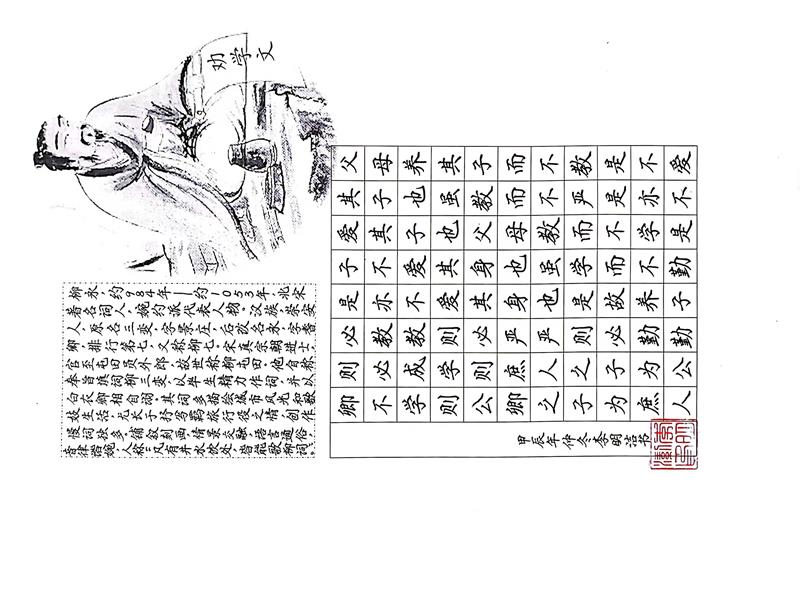 劝学文
父母养其子而不教是不爱
其子也虽教而不严是亦不
爱其子也父母教而不学是
子不爱其身也虽学而不勤
是亦不爱其身也是故养子
必教教则必严严则必勤勤
则必成学则庶人之子为公
卿不学则公卿之子为庶人
甲辰年仲冬李明洁书
柳永,约984年—约1053年,北宋
著名词人,婉约派代表人物。汉族,崇安
人,原名三变,字景庄,后改名永,字耆
卿,排行第七,又称柳七。宋真宗朝进士,
官至屯田员外郎,故世称柳屯田。他自称
奉旨填词柳三变,以毕生精力作词,并以
白衣卿相自诩。其词多描绘城市风光和歌
妓生活,尤长于抒写羁旅行役之情,创作
慢词独多,铺叙刻画,情景交融,语言通俗,
音律谐婉,人称:凡有井水饮处,皆能歌柳词。